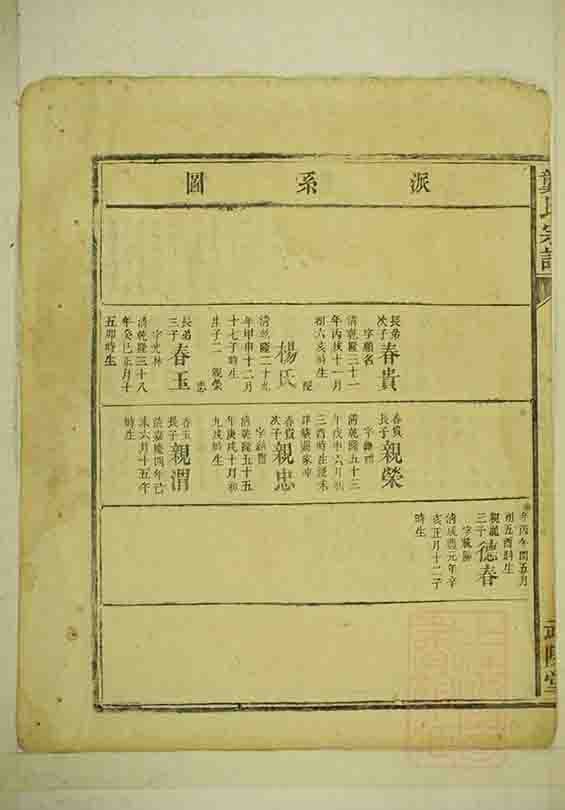 派系圖
長弟
次子
春貴
字顯名
清乾隆三十一
年丙戌十一月
初六亥時生
配
楊氏
清乾隆二十九
年甲申十二月
十七子時生
生子二 親榮
忠
長弟
三子
春玉
字光林
清乾隆三十八
年癸巳正月十
五卯時生
春貴
長子
親榮
清乾隆五十三
年戊申六月初
三酉時生
春貴
次子
親忠
清乾隆五十五
年庚戌十月初
九戌時生
春玉
長子
親渭
清嘉慶四年己
未六月十五午
時生
年丙午閏五月
初五酉時生
三子
德春
清咸豐元年辛
亥正月十二子
時生